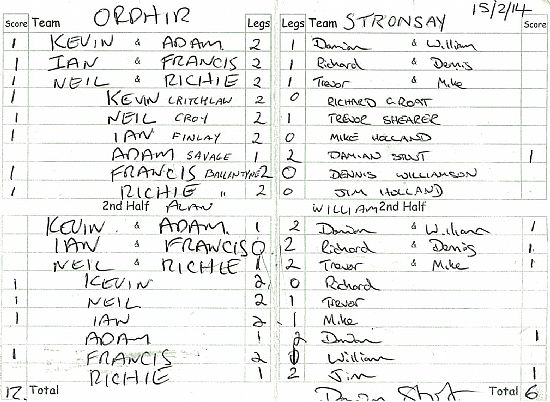 15/2/14
Score Team ORDHIR Legs Legs Team STRONSAY Score
1 KEVIN & ADAM 2 1 Damian & William
1 IAN & FRANCIS 2 1 Richard & Dennis
1 NEIL & RICHIE 2 1 Trevor & Mike
1 KEVIN CRITCHLAW 2 0 RICHARD GROAT
1 NEIL CROY 2 1 TREVOR SHEARER
1 IAN FINLAY 2 0 MIKE HOLLAND
ADAM SAVAGE 1 2 DAMIAN STOUT 1
1 FRANCIS BALLANTYNE 2 0 DENNIS WILLIAMSON
1 RICHIE " 2 0 JIM HOLLAND
2nd Half ALAN WILLIAM 2nd Half
KEVIN & ADAM 1 2 Damian & William 1
IAN & FRANCIS 0 2 Richard & Dennis 1
NEIL & RICHIE 1 2 Trevor & Mike 1
1 KEVIN 2 0 Richard
1 NEIL 2 1 Trevor
1 IAN 2 1 Mike
ADAM 1 2 Damian 1
1 FRANCIS 2 William
RICHIE 1 2 Jim 1
12 Total Total 6